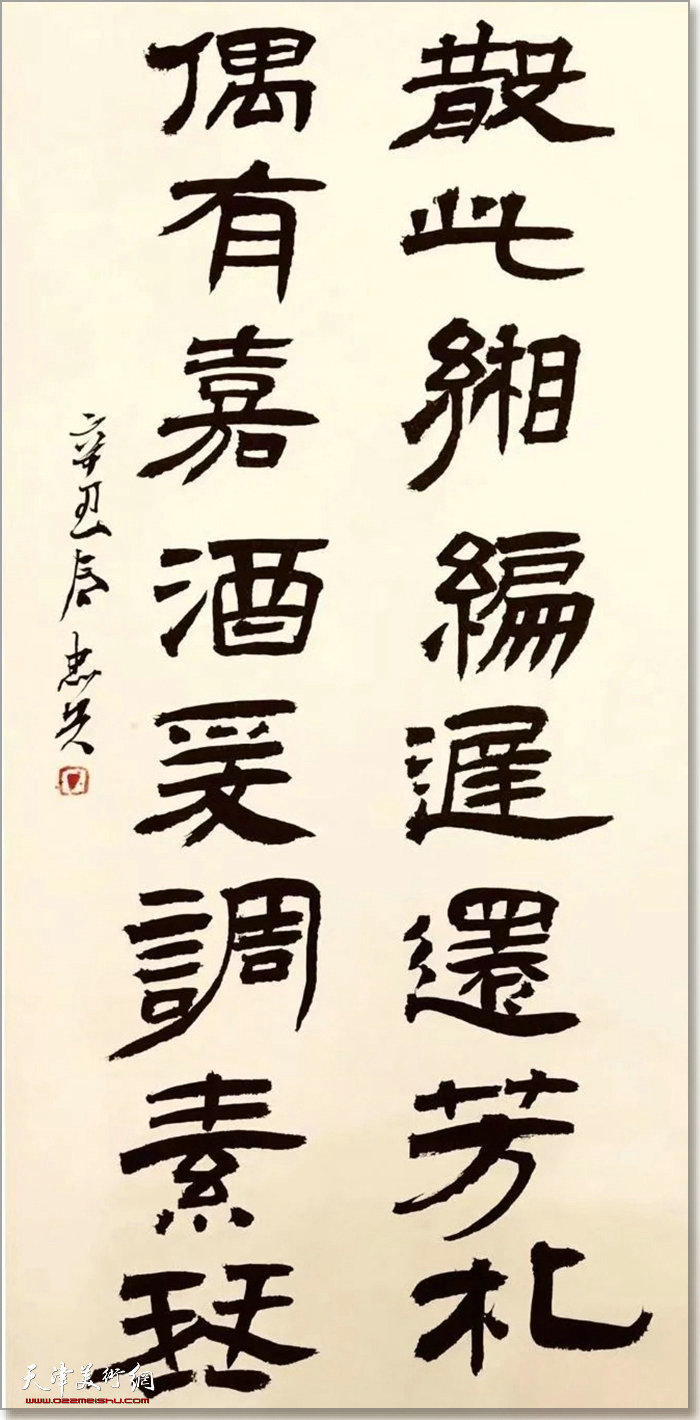 散此緗編遲還芳札
偶有嘉酒爰調素琴
辛丑
天津美術網
www.022meishu.com